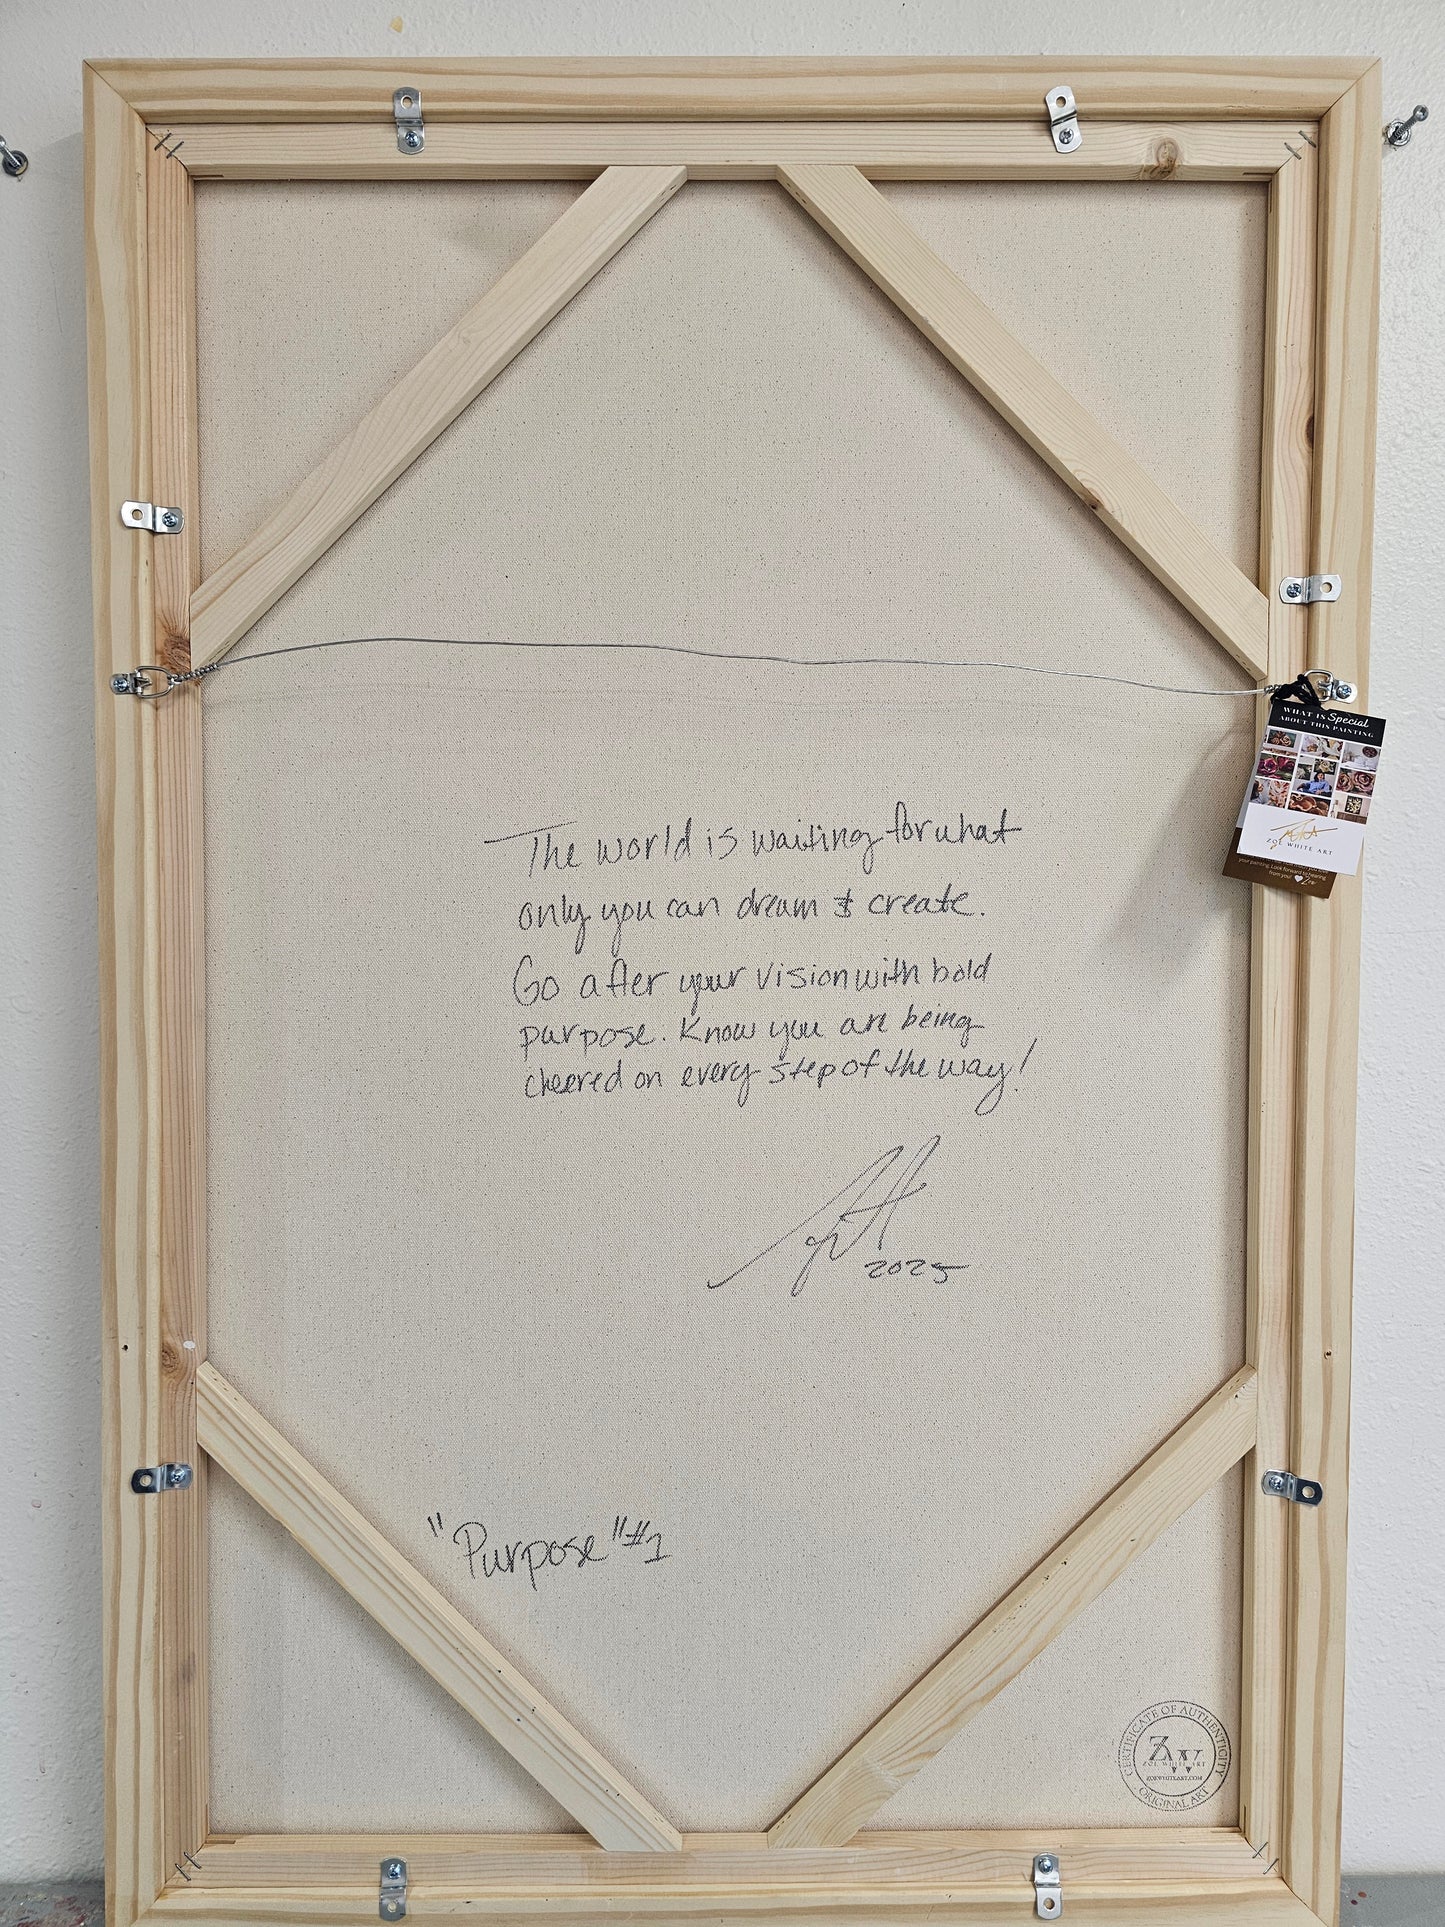 WHAT IS Special
ABOUT THIS PAINTING
ZOË WHITE ART
your painting. Look forward to hearing
from you! Zoë
The world is waiting for what
only you can dream & create.
Go after your vision with bold
purpose. Know you are being
cheered on every step of the way!
2025
"Purpose" #1
CERTIFICATE OF AUTHENTICITY
ZW
ZOË WHITE ART
ZOEWHITEART.COM
ORIGINAL ART